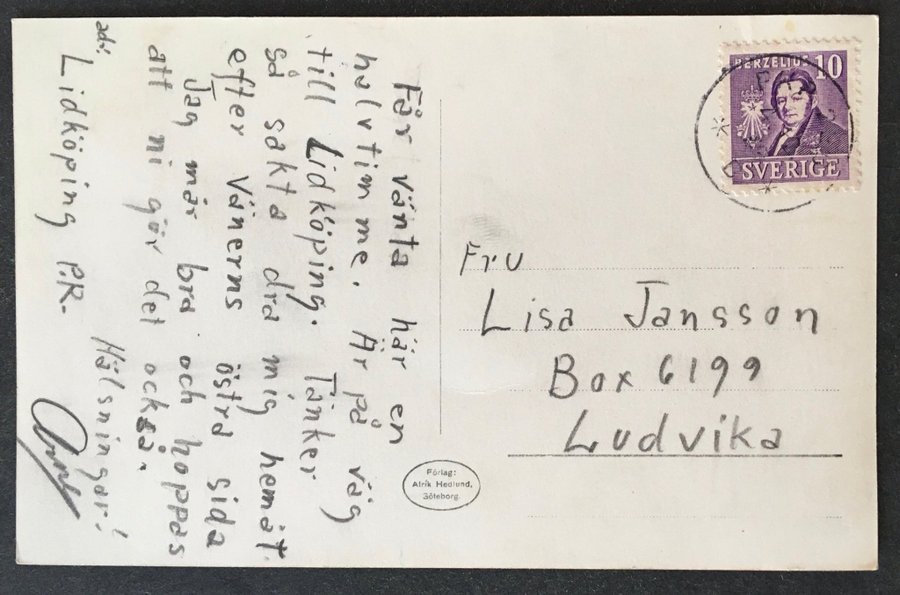 Får vänta här en
halvtimme. Är på väg
till Lidköping. Tänker
så sakta dra mig hemåt
efter Vänerns östra sida
Jag mår bra och hoppas
att ni gör det också.
Hälsningar!
adr: Lidköping P.R.
BERZELIUS 10
SVERIGE
Fru
Lisa Jansson
Box 6199
Ludvika
Förlag:
Alrik Hedlund,
Göteborg.